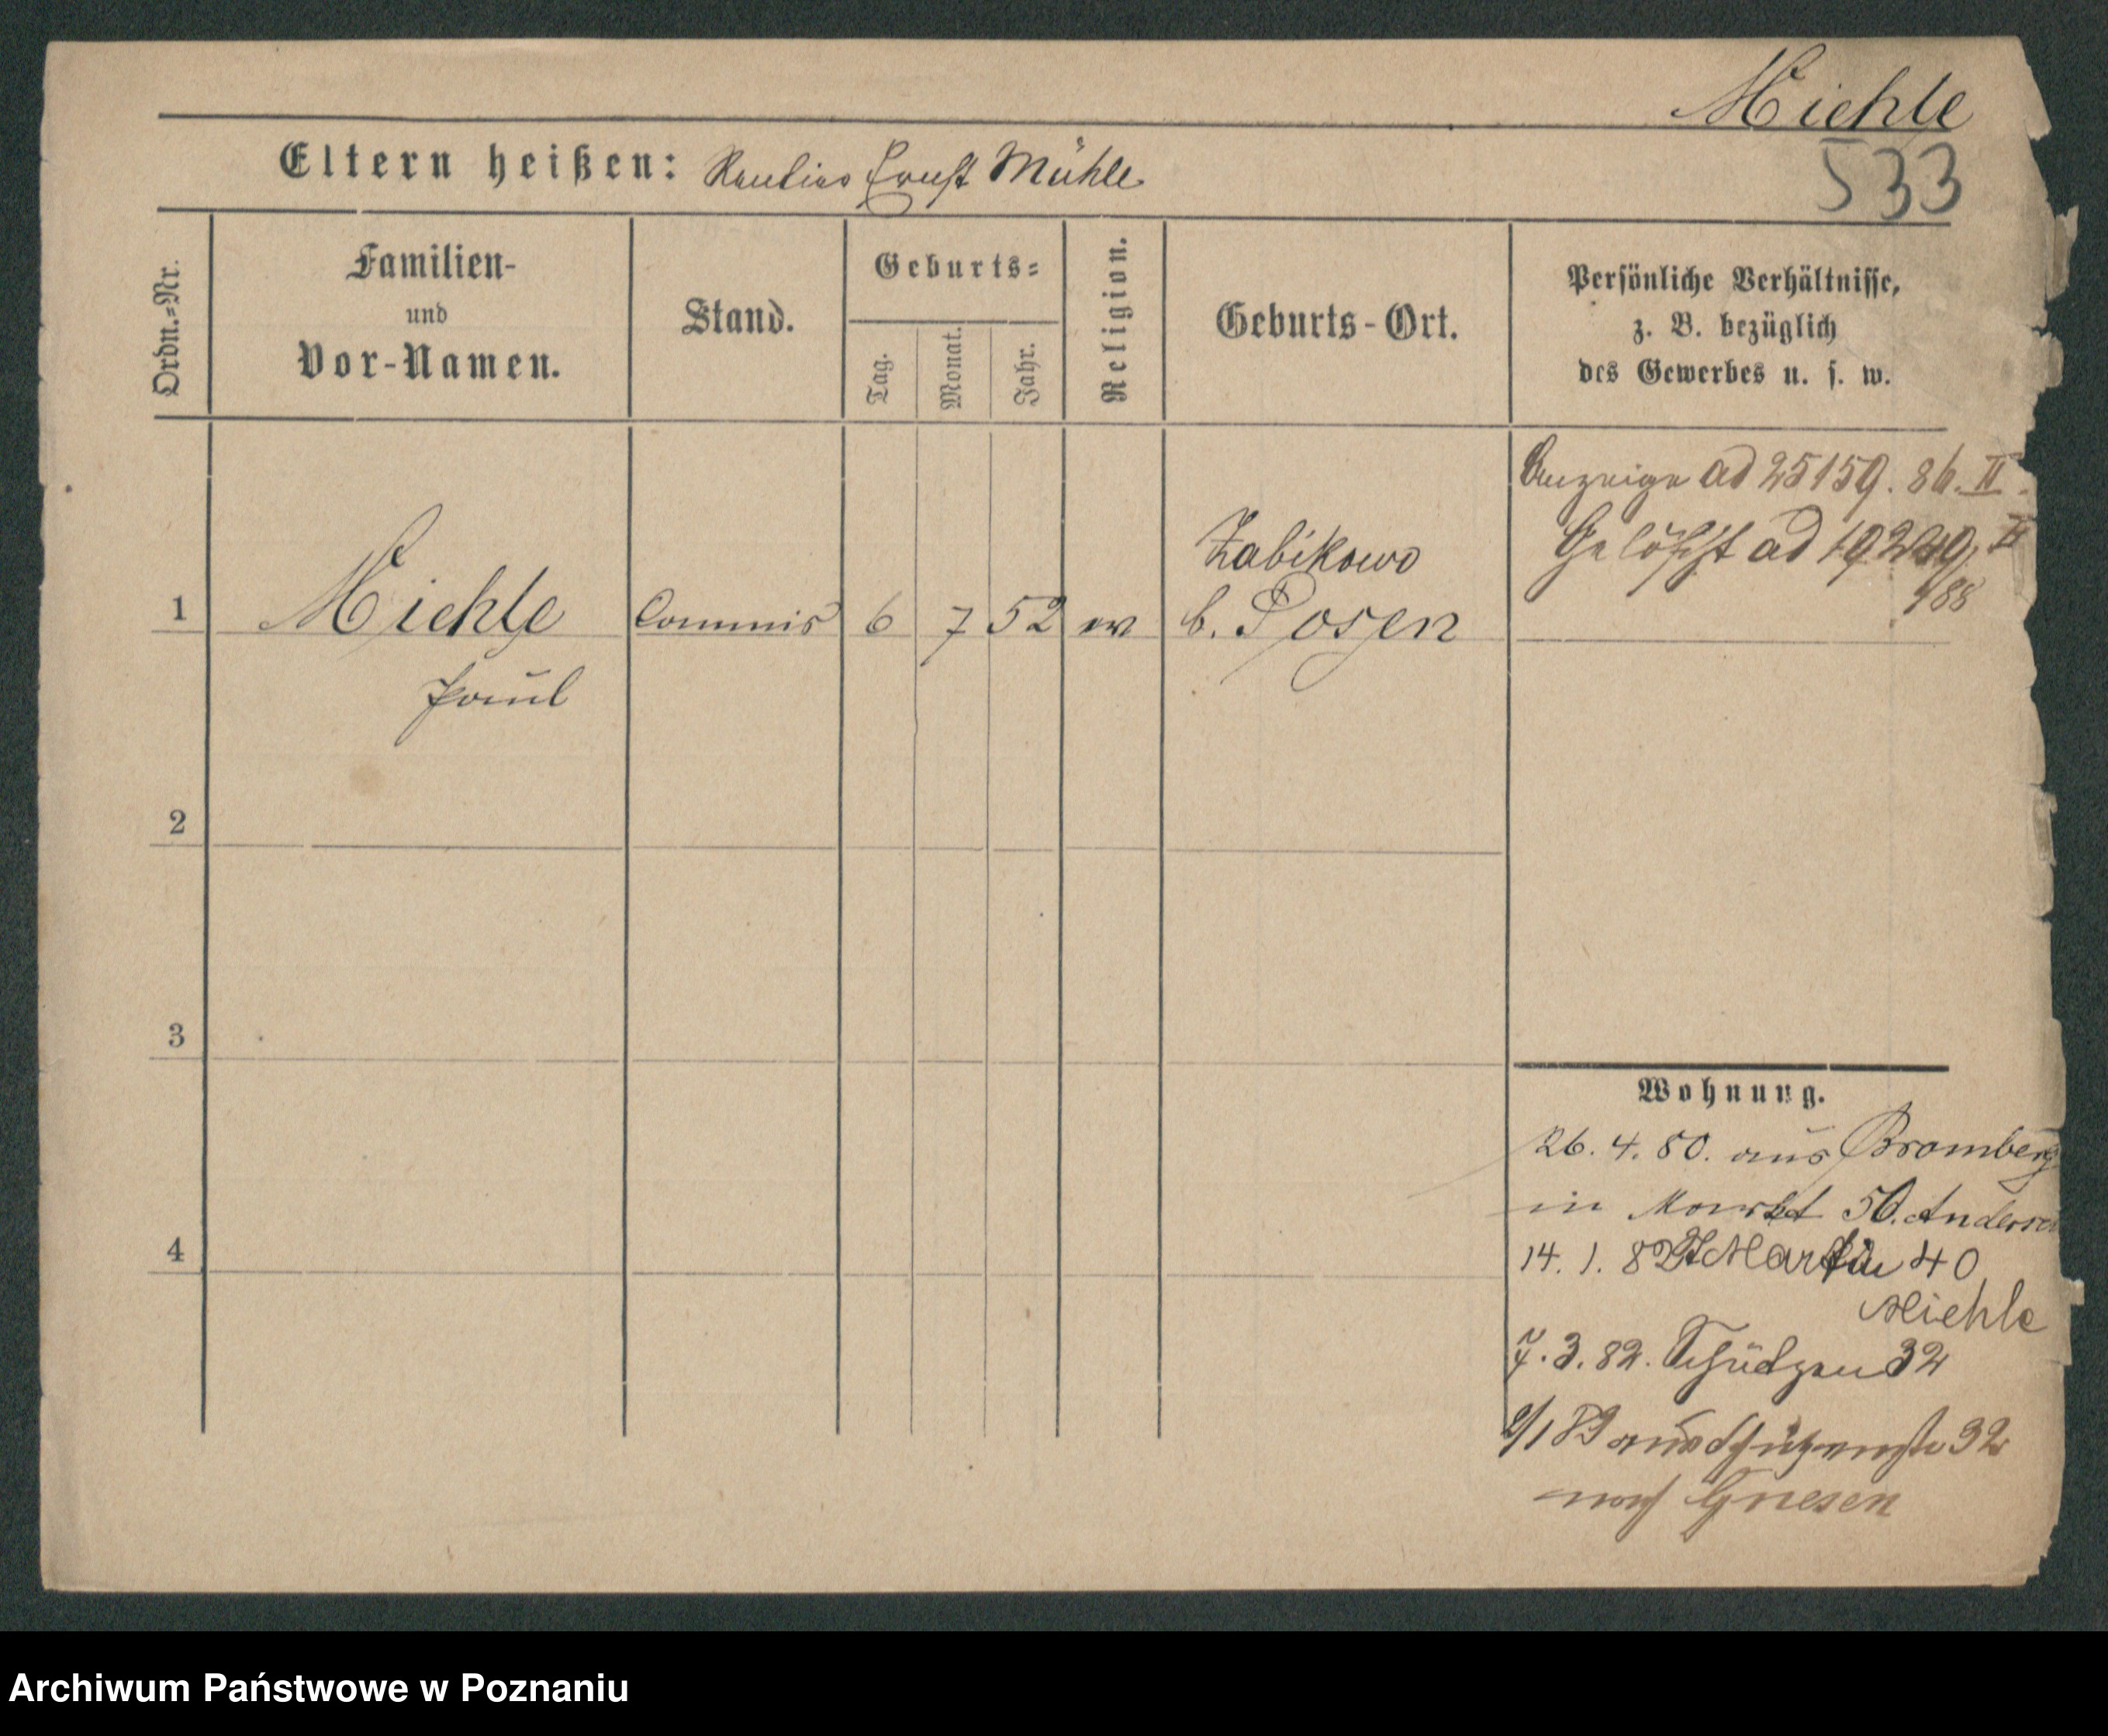 Miehle
533
Eltern heißen: Rentier Ernst Mühle
Ordn.-Nr.
Familien-
und
Vor-Namen.
Stand.
Geburts-
Tag.
Monat.
Jahr.
Religion.
Geburts-Ort.
Persönliche Verhältnisse,
z. B. bezüglich
des Gewerbes u. s. w.
Anzeige ad 25159. 86. II.
Gelöscht ad
/88
1 Miehle Commis 6 7 52 ev Zabikowo
b. Posen
Paul
2
3
4
Wohnung.
26. 4. 80. aus Bromberg
in Markt 50. Andersch
14. 1. 82 St Martin 40
Miehle
7. 3. 82. Schützen 32
aus Schützenstr 32
nach Gnesen
Archiwum Państwowe w Poznaniu